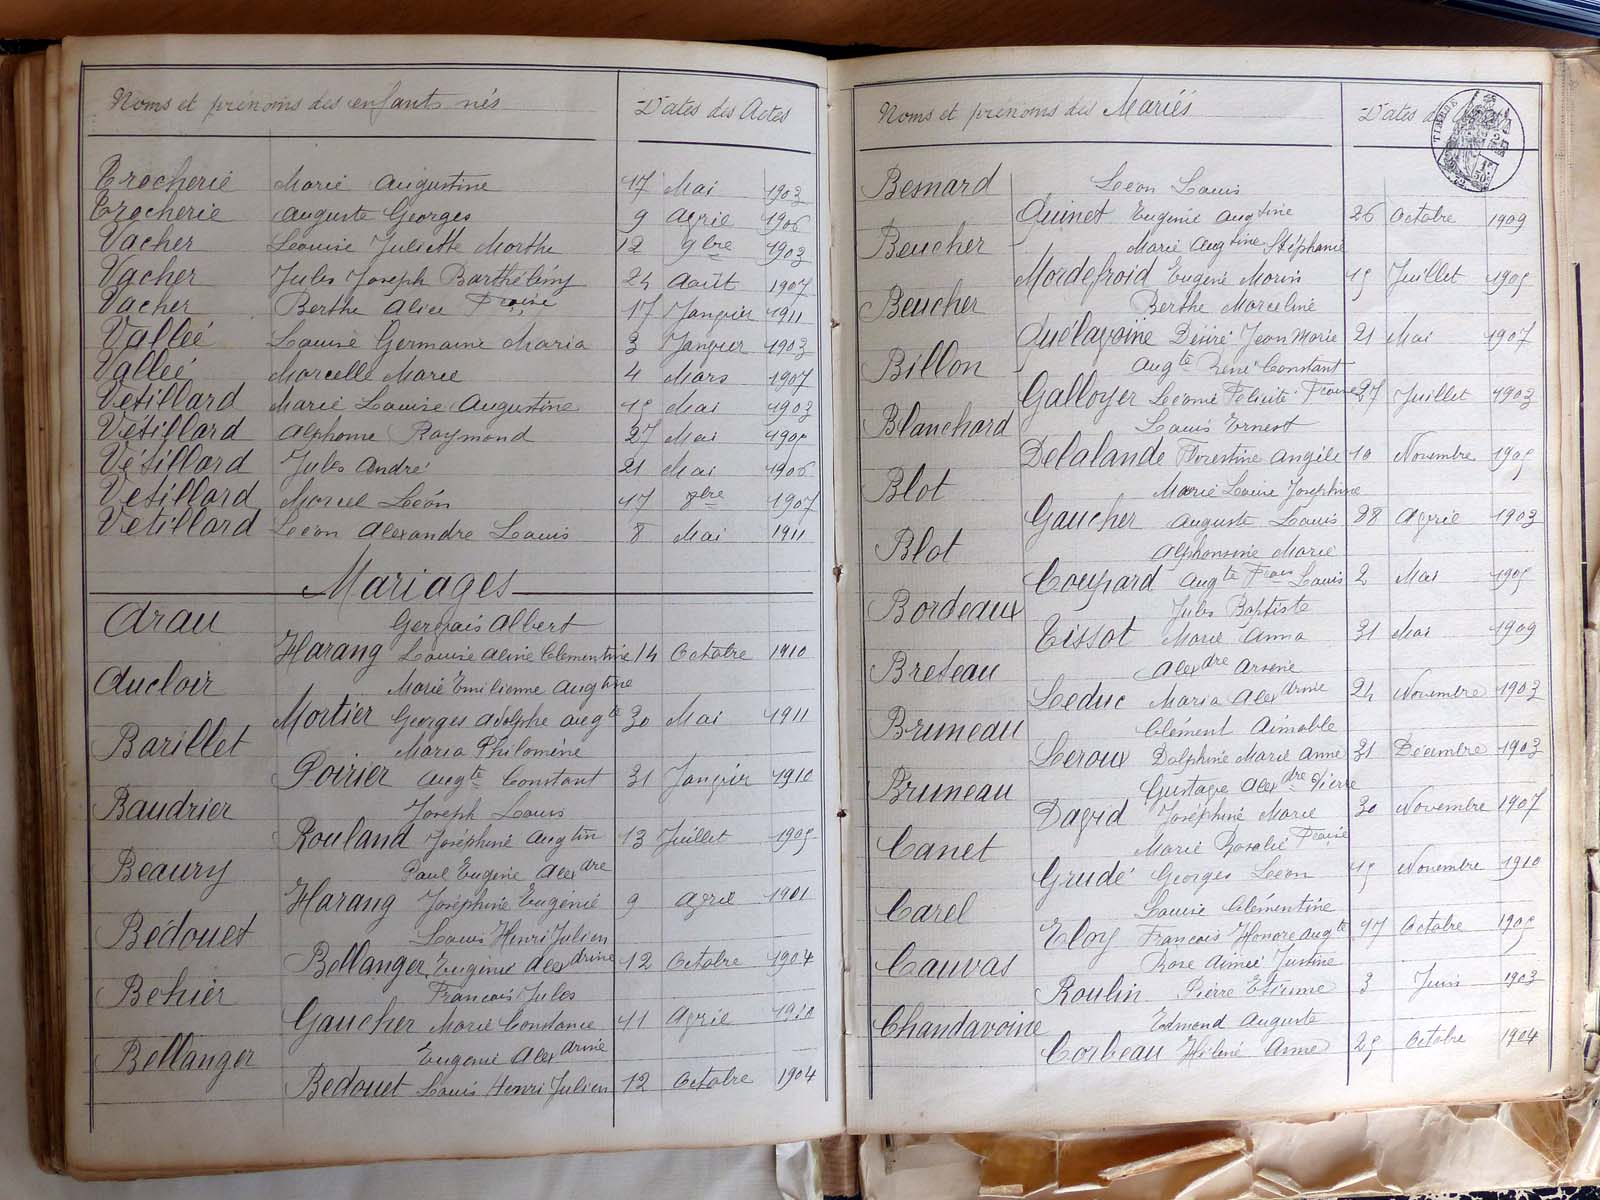 Noms et prénoms des enfants nés Dates des Actes
Trocherie Marie Augustine 17 Mai 1903
Trocherie Auguste Georges 9 Avril 1906
Vacher Louise Juliette Marthe 12 9bre 1903
Vacher Jules Joseph Barthélémy 24 Août 1907
Vacher Berthe Alice Fçoise 17 Janvier 1911
Vallée Louise Germaine Maria 3 Janvier 1903
Vallée Marcelle Marie 4 Mars 1907
Vétillard Marie Louise Augustine 15 Mai 1903
Vétillard Alphonse Raymond 27 Mai 1905
Vétillard Jules André 21 Mai 1906
Vétillard Marcel Léon 17 8bre 1907
Vétillard Léon Alexandre Louis 8 Mai 1911
Mariages
Arau Gervais Albert
Harang Louise Aline Clémentine 14 Octobre 1910
Aucloir Marie Emilienne Augtine
Mortier Georges Adolphe Augte 30 Mai 1911
Barillet Maria Philomène
Poirier Augte Constant 31 Janvier 1910
Baudrier Joseph Louis
Rouland Joséphine Augtin 13 Juillet 1905
Beaury Paul Eugène Alexdre
Harang Joséphine Eugénie 9 Avril 1901
Bédouet Louis Henri Julien
Bellanger Eugénie Alexdrine 12 Octobre 1904
Behier François Jules
Gaucher Marie Constance 11 Avril 1910
Bellanger Eugénie Alexdrine
Bedouet Louis Henri Julien 12 Octobre 1904
Noms et prénoms des Mariés Dates des
TIMBRE
Besnard Léon Louis
Quinet Eugénie Augtine 26 Octobre 1909
Beucher Marie Augtine Stéphanie
Mordefroid Eugène Morin 15 Juillet 1905
Beucher Berthe Marceline
Quélavoine Désiré Jean Marie 21 Mai 1907
Billon Augte René Constant
Galloyer Léonie Félicité Fçoise 27 Juillet 1903
Blanchard Louis Ernest
Delalande Florestine Angèle 10 Novembre 1905
Blot Marie Louise Joséphine
Gaucher Auguste Louis 28 Avril 1903
Blot Alphonsine Marie
Coupard Augte Fçois Louis 2 Mai 1905
Bordeaux Jules Baptiste
Tissot Marie Anna 31 Mai 1909
Breteau Alexdre Arsène
Leduc Maria Alexdrine 24 Novembre 1903
Bruneau Clément Aimable
Leroux Delphine Marie Anne 31 Décembre 1903
Bruneau Gustave Alexdre Pierre
David Joséphine Marie 30 Novembre 1907
Canet Marie Rosalie Fçoise
Grudé Georges Léon 15 Novembre 1910
Carel Louise Clémentine
Eloy François Honoré Augte 17 Octobre 1905
Cauvas Rose Aimée Justine
Roulin Pierre Etienne 3 Juin 1903
Chandavoine Edmond Auguste
Corbeau Hélène Anne 25 Octobre 1904